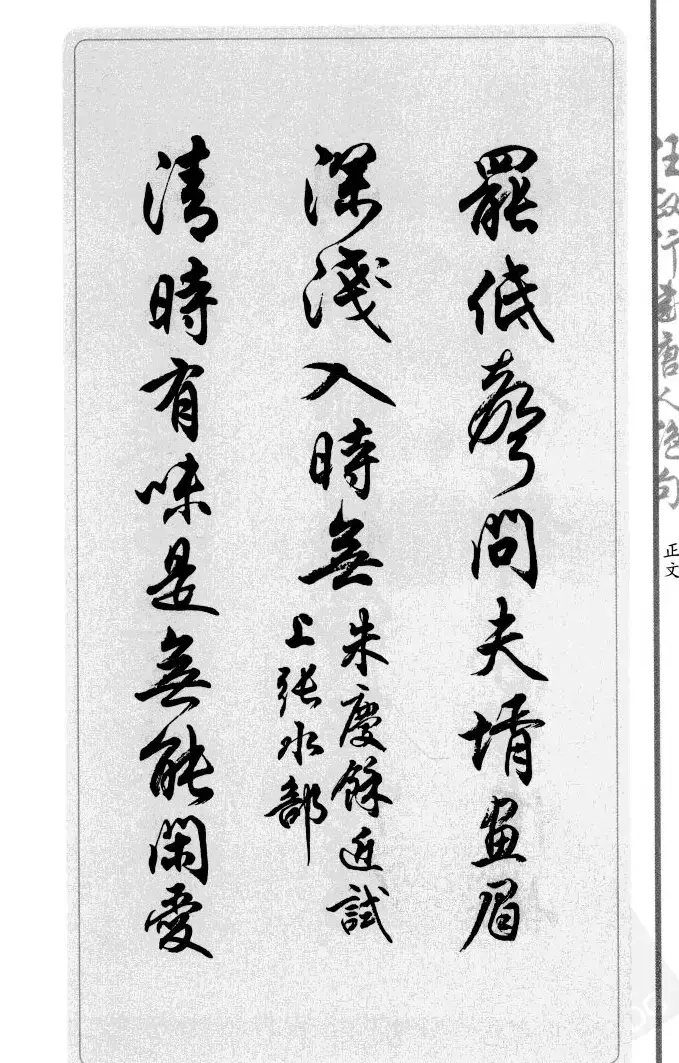 罷低聲問夫壻畫眉
深淺入時無
朱慶餘近試
上張水部
清時有味是無能閑愛
任政行書唐人絕句
正文